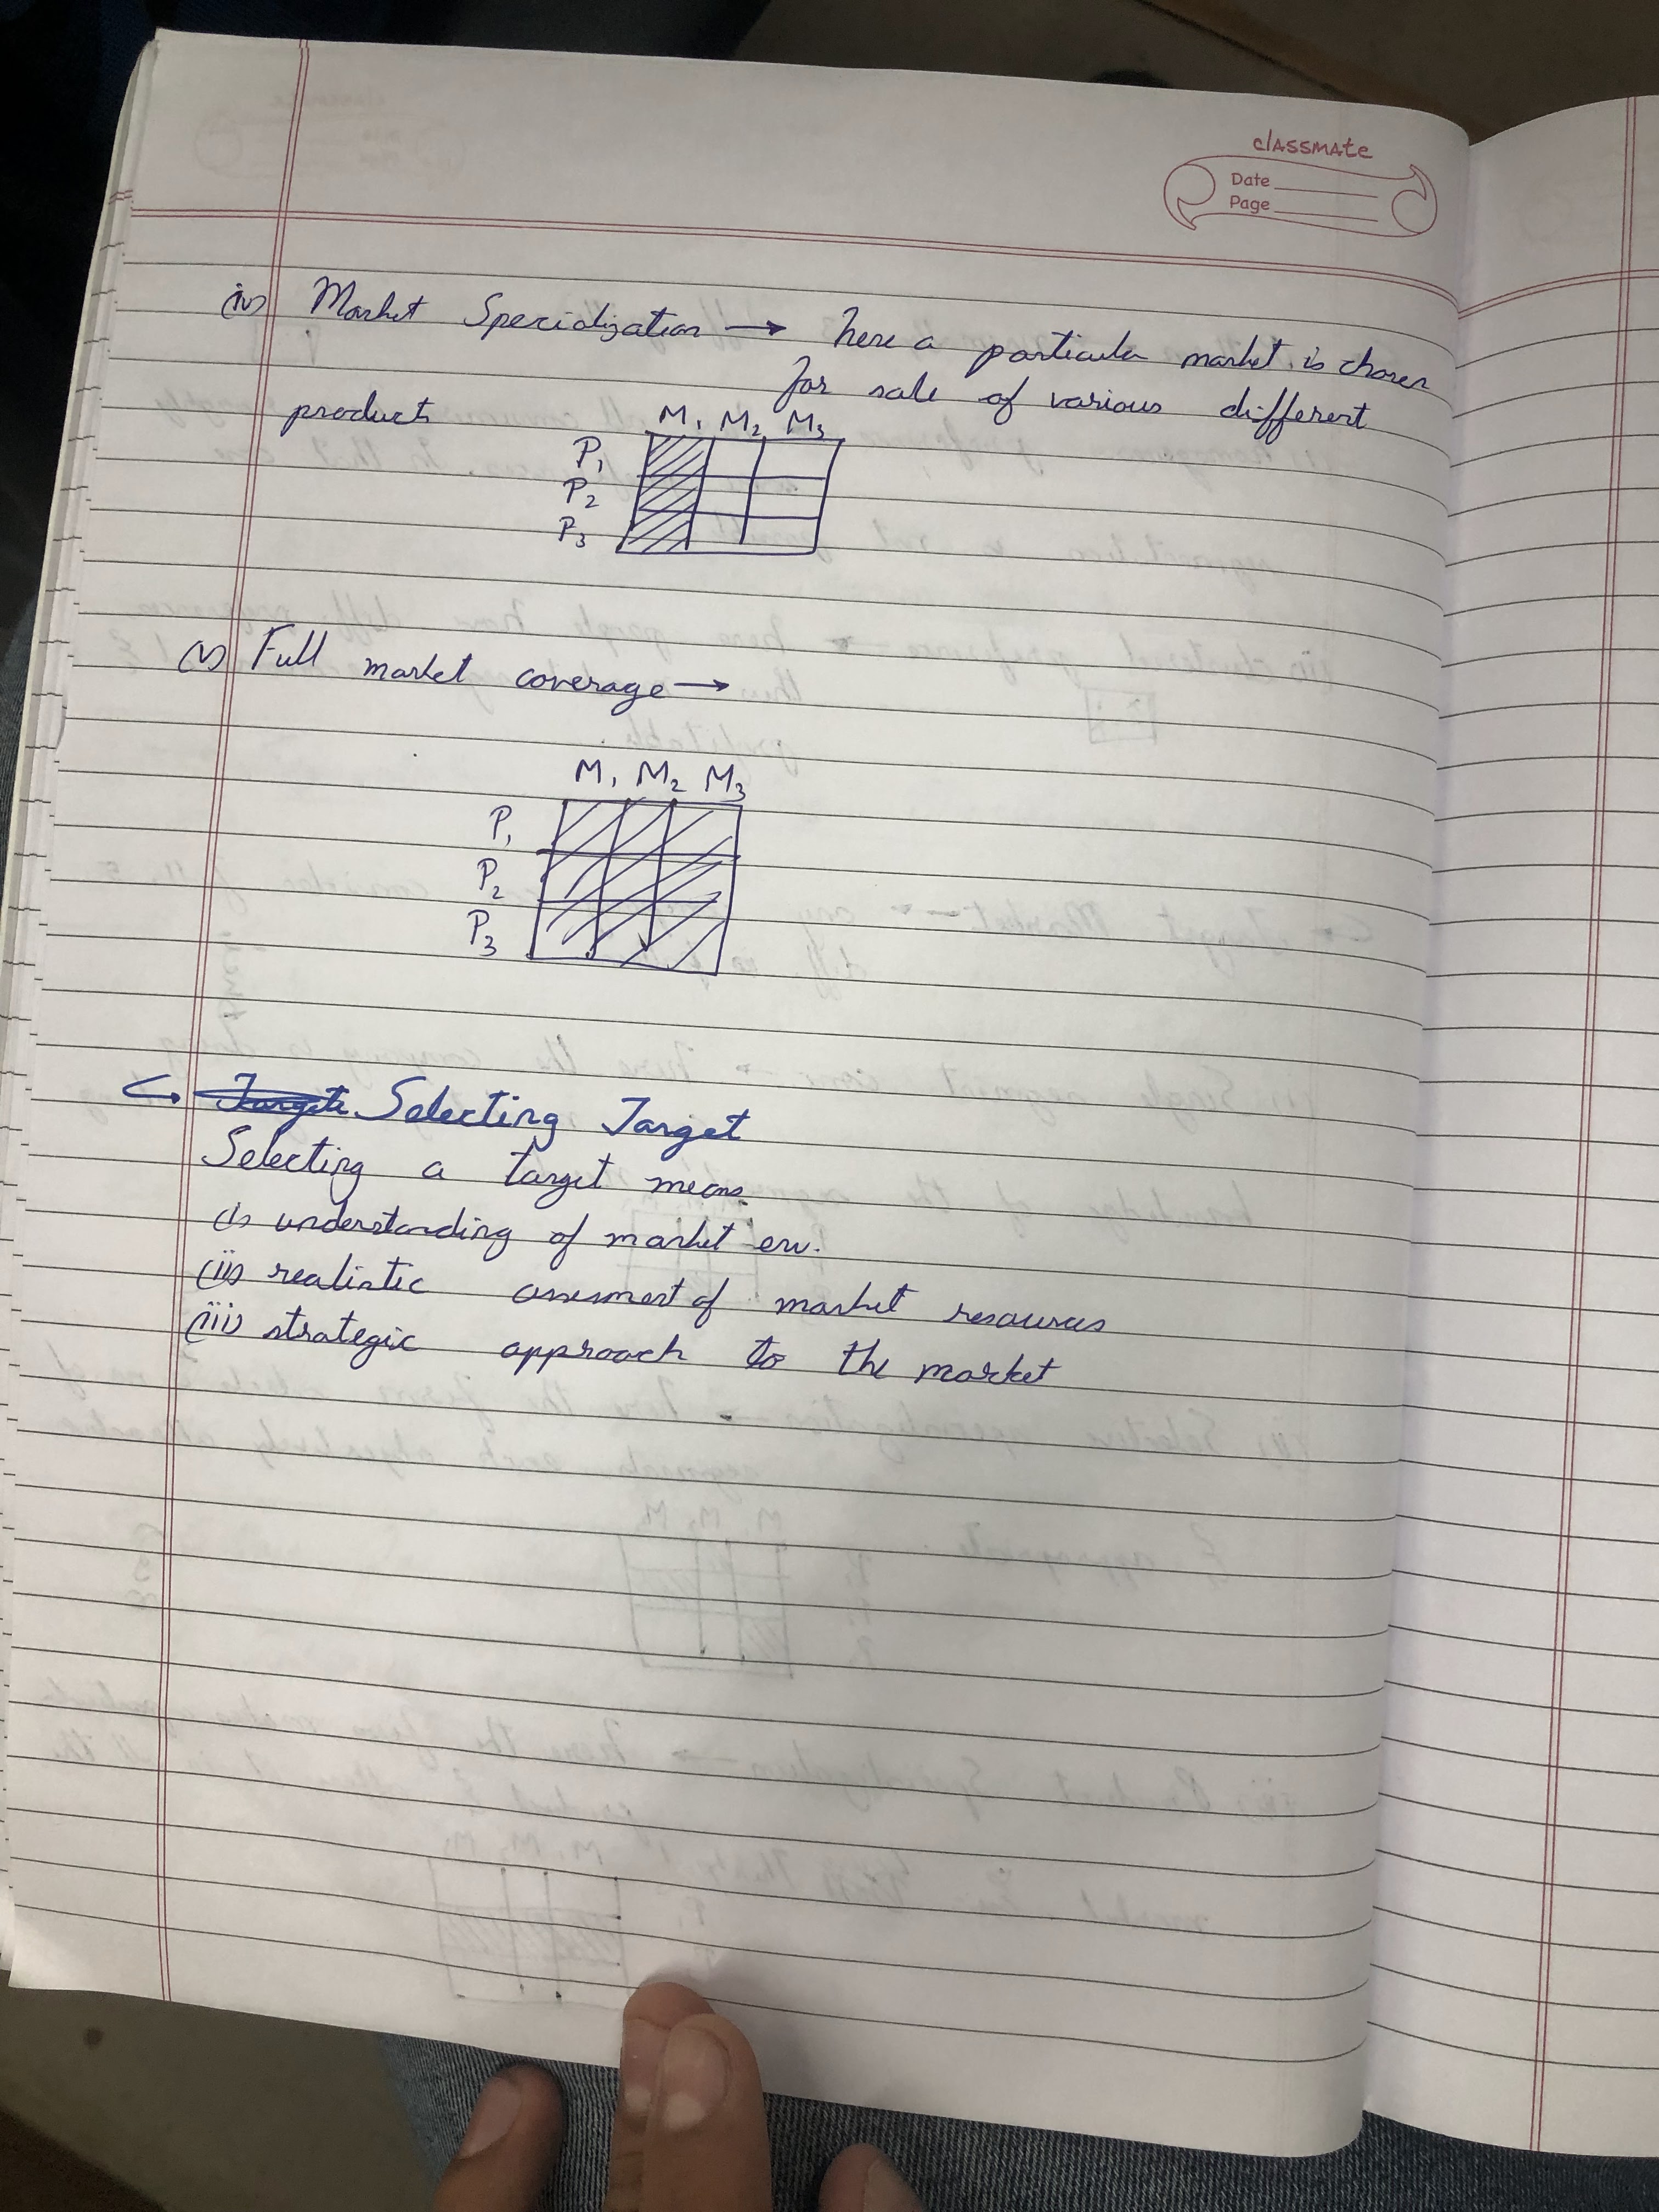 classmate
Date
Page
(iv) Market Specialization → here a particular market is chosen
for sale of various different
product
M1 M2 M3
P1
P2
P3
(v) Full market coverage →
M1 M2 M3
P1
P2
P3
Selecting Target
Selecting a target means
(i) understanding of market env.
(ii) realistic assesment of market resources
(iii) strategic approach to the market